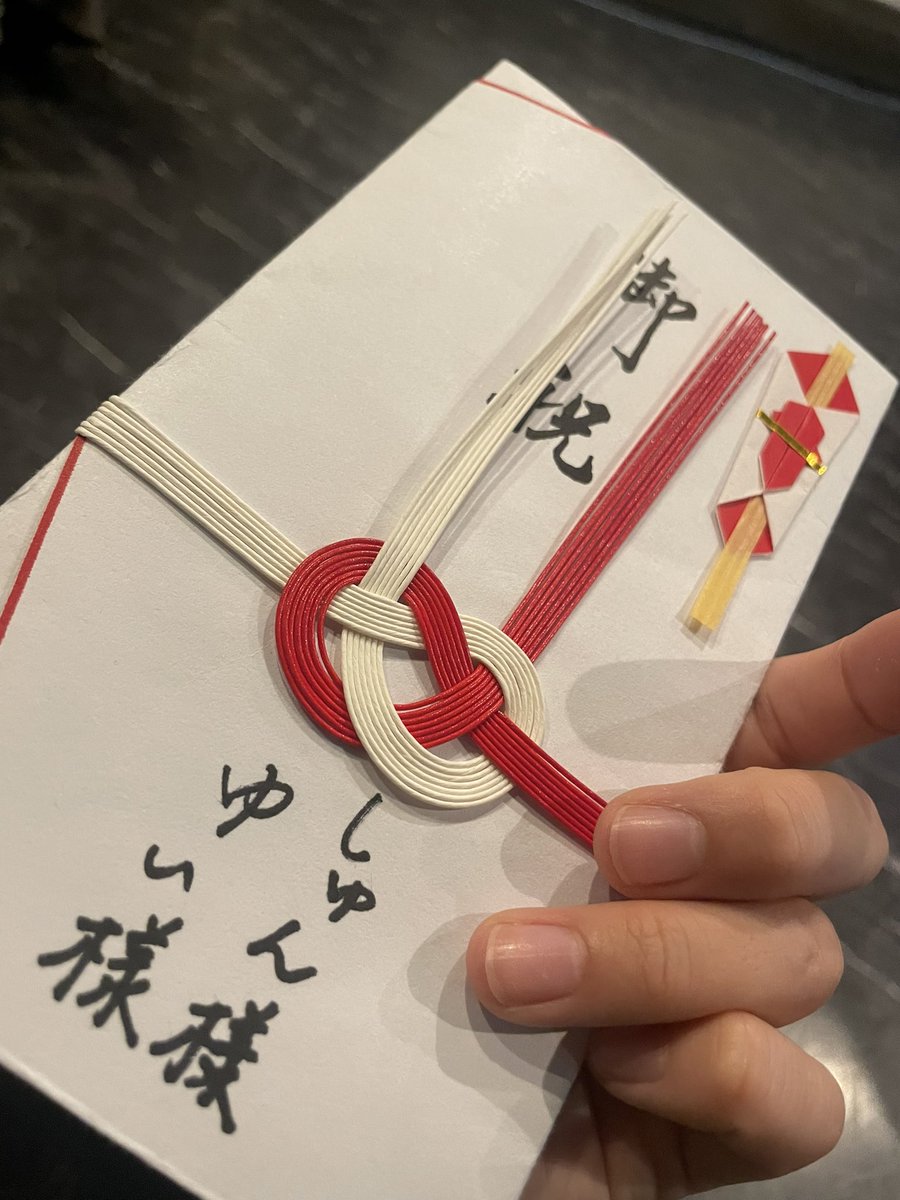 御祝
しゅん様
ゆい様